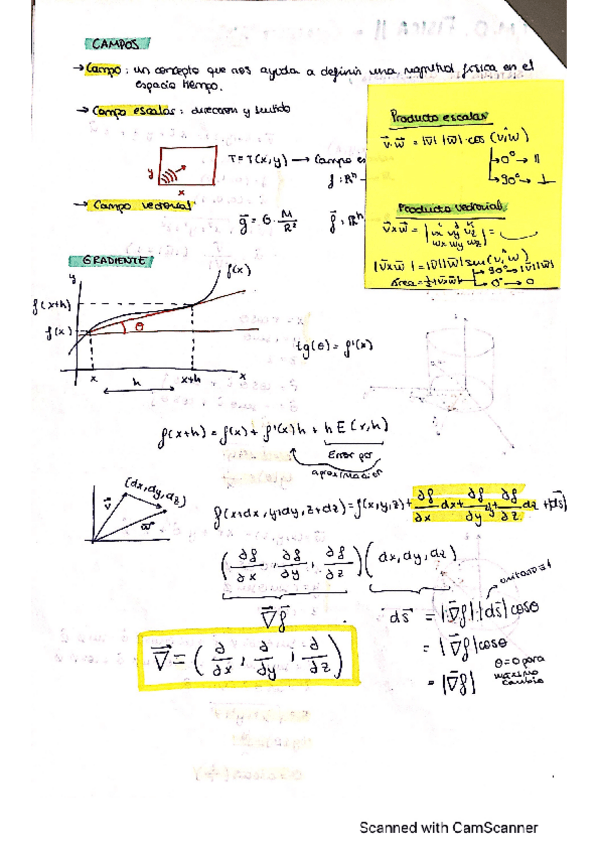 CAMPOS
→ Campo: un concepto que nos ayuda a definir una magnitud física en el
espacio tiempo.
→ Campo escalar: dirección y sentido
y
x
T = T(x,y) → Campo es
f: ℝⁿ →
→ Campo vectorial
g⃗ = G · M/R²
f⃗: ℝⁿ
Producto escalar
v⃗·w⃗ = |v⃗| |w⃗| · cos (v,w)
0° → ||
90° → ⊥
Producto vectorial
v⃗xw⃗ = | vx vy vz | =
wx wy wz
|v⃗xw⃗| = |v⃗||w⃗| sen(v,w)
90° → |v⃗||w⃗|
0° → 0
GRADIENTE
y
f(x)
f(x+h)
f(x)
θ
x
h
x+h
x
tg(θ) = f'(x)
f(x+h) = f(x) + f'(x)h + h E(x,h)
Error por
aproximación
(dx, dy, dz)
v⃗
f(x+dx, y+dy, z+dz) = f(x,y,z) + ∂f/∂x dx + ∂f/∂y + ∂f/∂z dz + |ds⃗|
(∂f/∂x, ∂f/∂y, ∂f/∂z)(dx, dy, dz)
∇⃗f
ds⃗ = |∇⃗f|·|ds⃗| cosθ
= |∇⃗f| cosθ
θ=0 para
máximo
cambio
= |∇⃗f|
∇⃗ = (∂/∂x, ∂/∂y, ∂/∂z)
Scanned with CamScanner